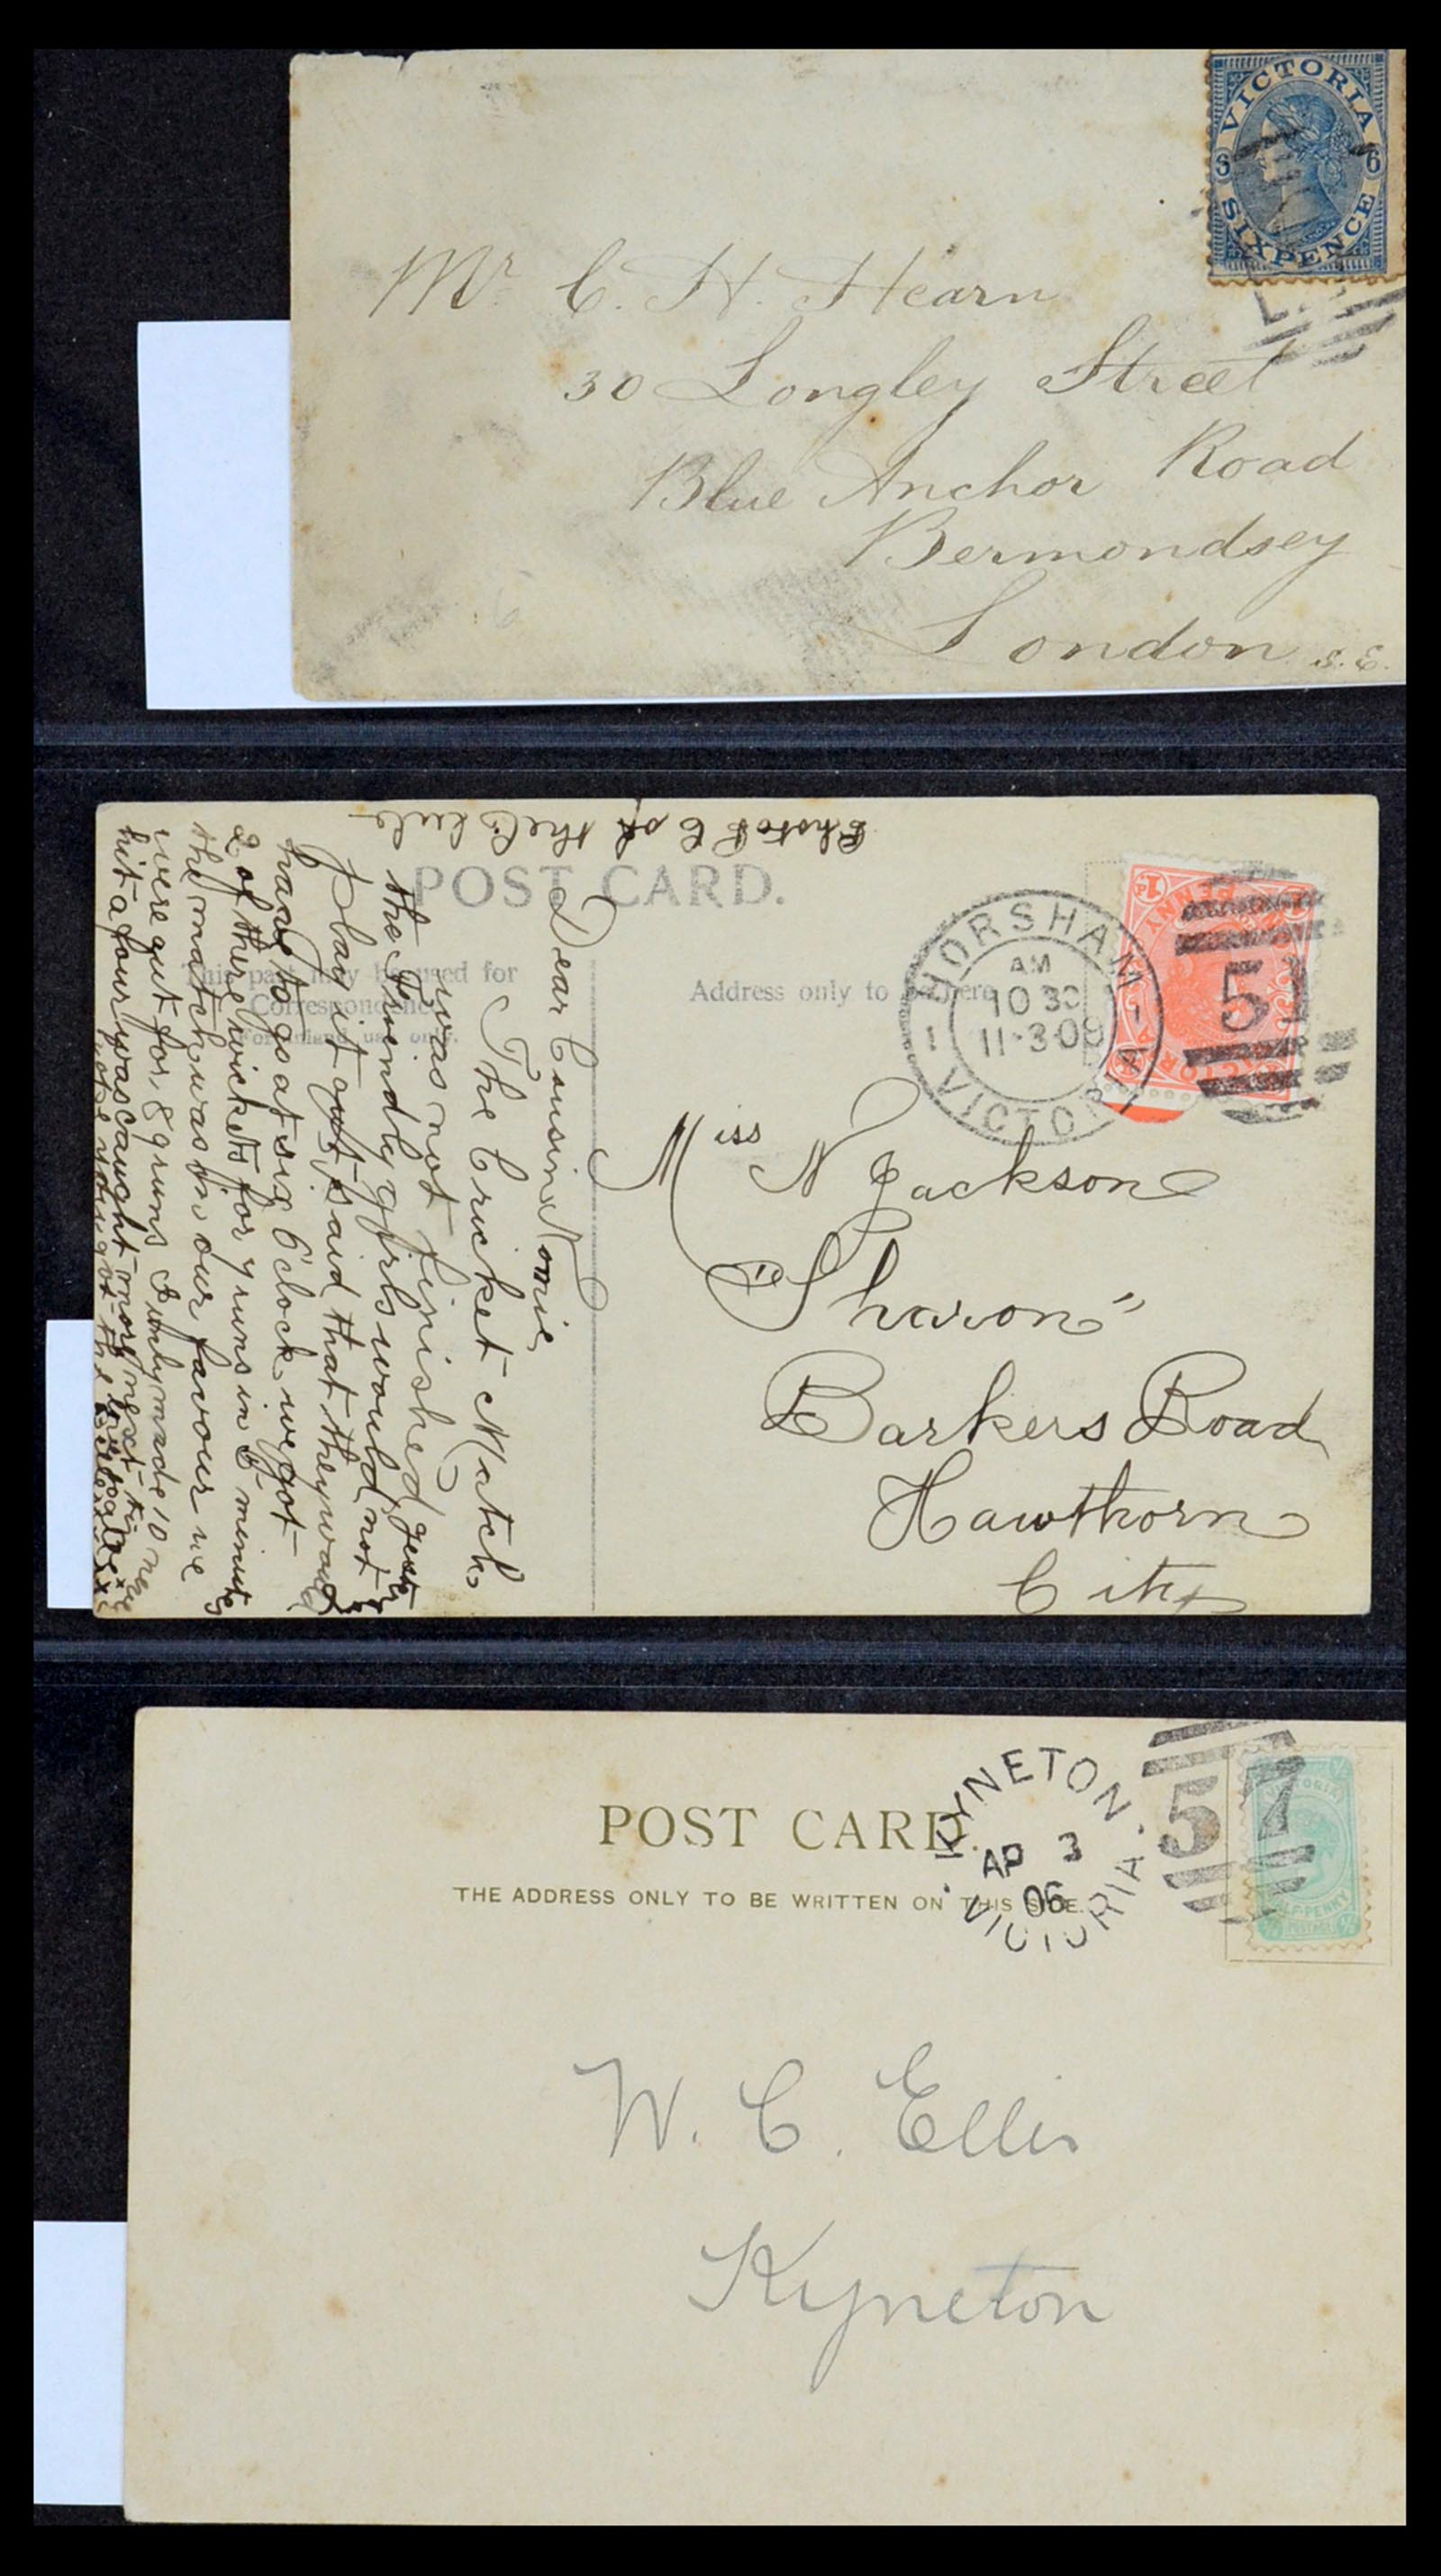 VICTORIA
6 6
SIXPENCE
Mr. C. H. Hearn
30 Longley Street
Blue Anchor Road
Bermondsey
London S.E.
POST CARD.
This part may be used for
Correspondence
For inland use only.
Address only to be here
HORSHAM
AM
10 30
11·3·09
1 1
VICTORIA
57
PENNY
Dear Cousin Nomie,
The Cricket Match
was not finished yesty
the Friendly girls would not
play it out, said that they would
have to go at six o'clock, we got
2 of there wickets for 7 runs in 5 minutes
the match was in our favour we
were out for 89 runs I only made 10 runs
hit a four was caught more next time
hope you got the
of the Club
Miss N Jackson
"Sharon"
Barkers Road
Hawthorn
City
POST CARD.
THE ADDRESS ONLY TO BE WRITTEN ON THIS SIDE.
KYNETON
AP 3
06
VICTORIA
57
VICTORIA
HALFPENNY
POSTAGE
W. C. Ellis
Kyneton